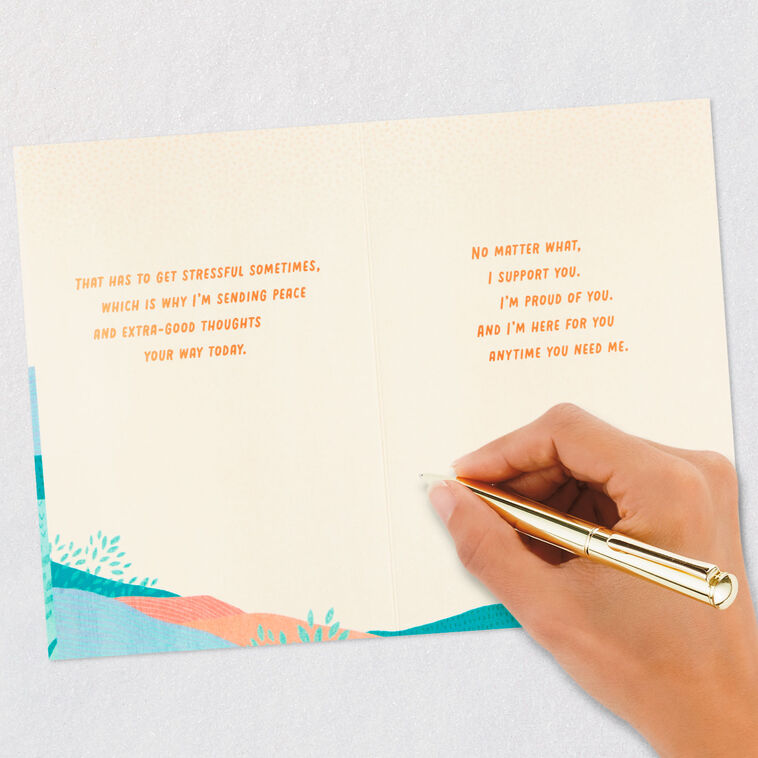 THAT HAS TO GET STRESSFUL SOMETIMES,
WHICH IS WHY I'M SENDING PEACE
AND EXTRA-GOOD THOUGHTS
YOUR WAY TODAY.
NO MATTER WHAT,
I SUPPORT YOU.
I'M PROUD OF YOU.
AND I'M HERE FOR YOU
ANYTIME YOU NEED ME.